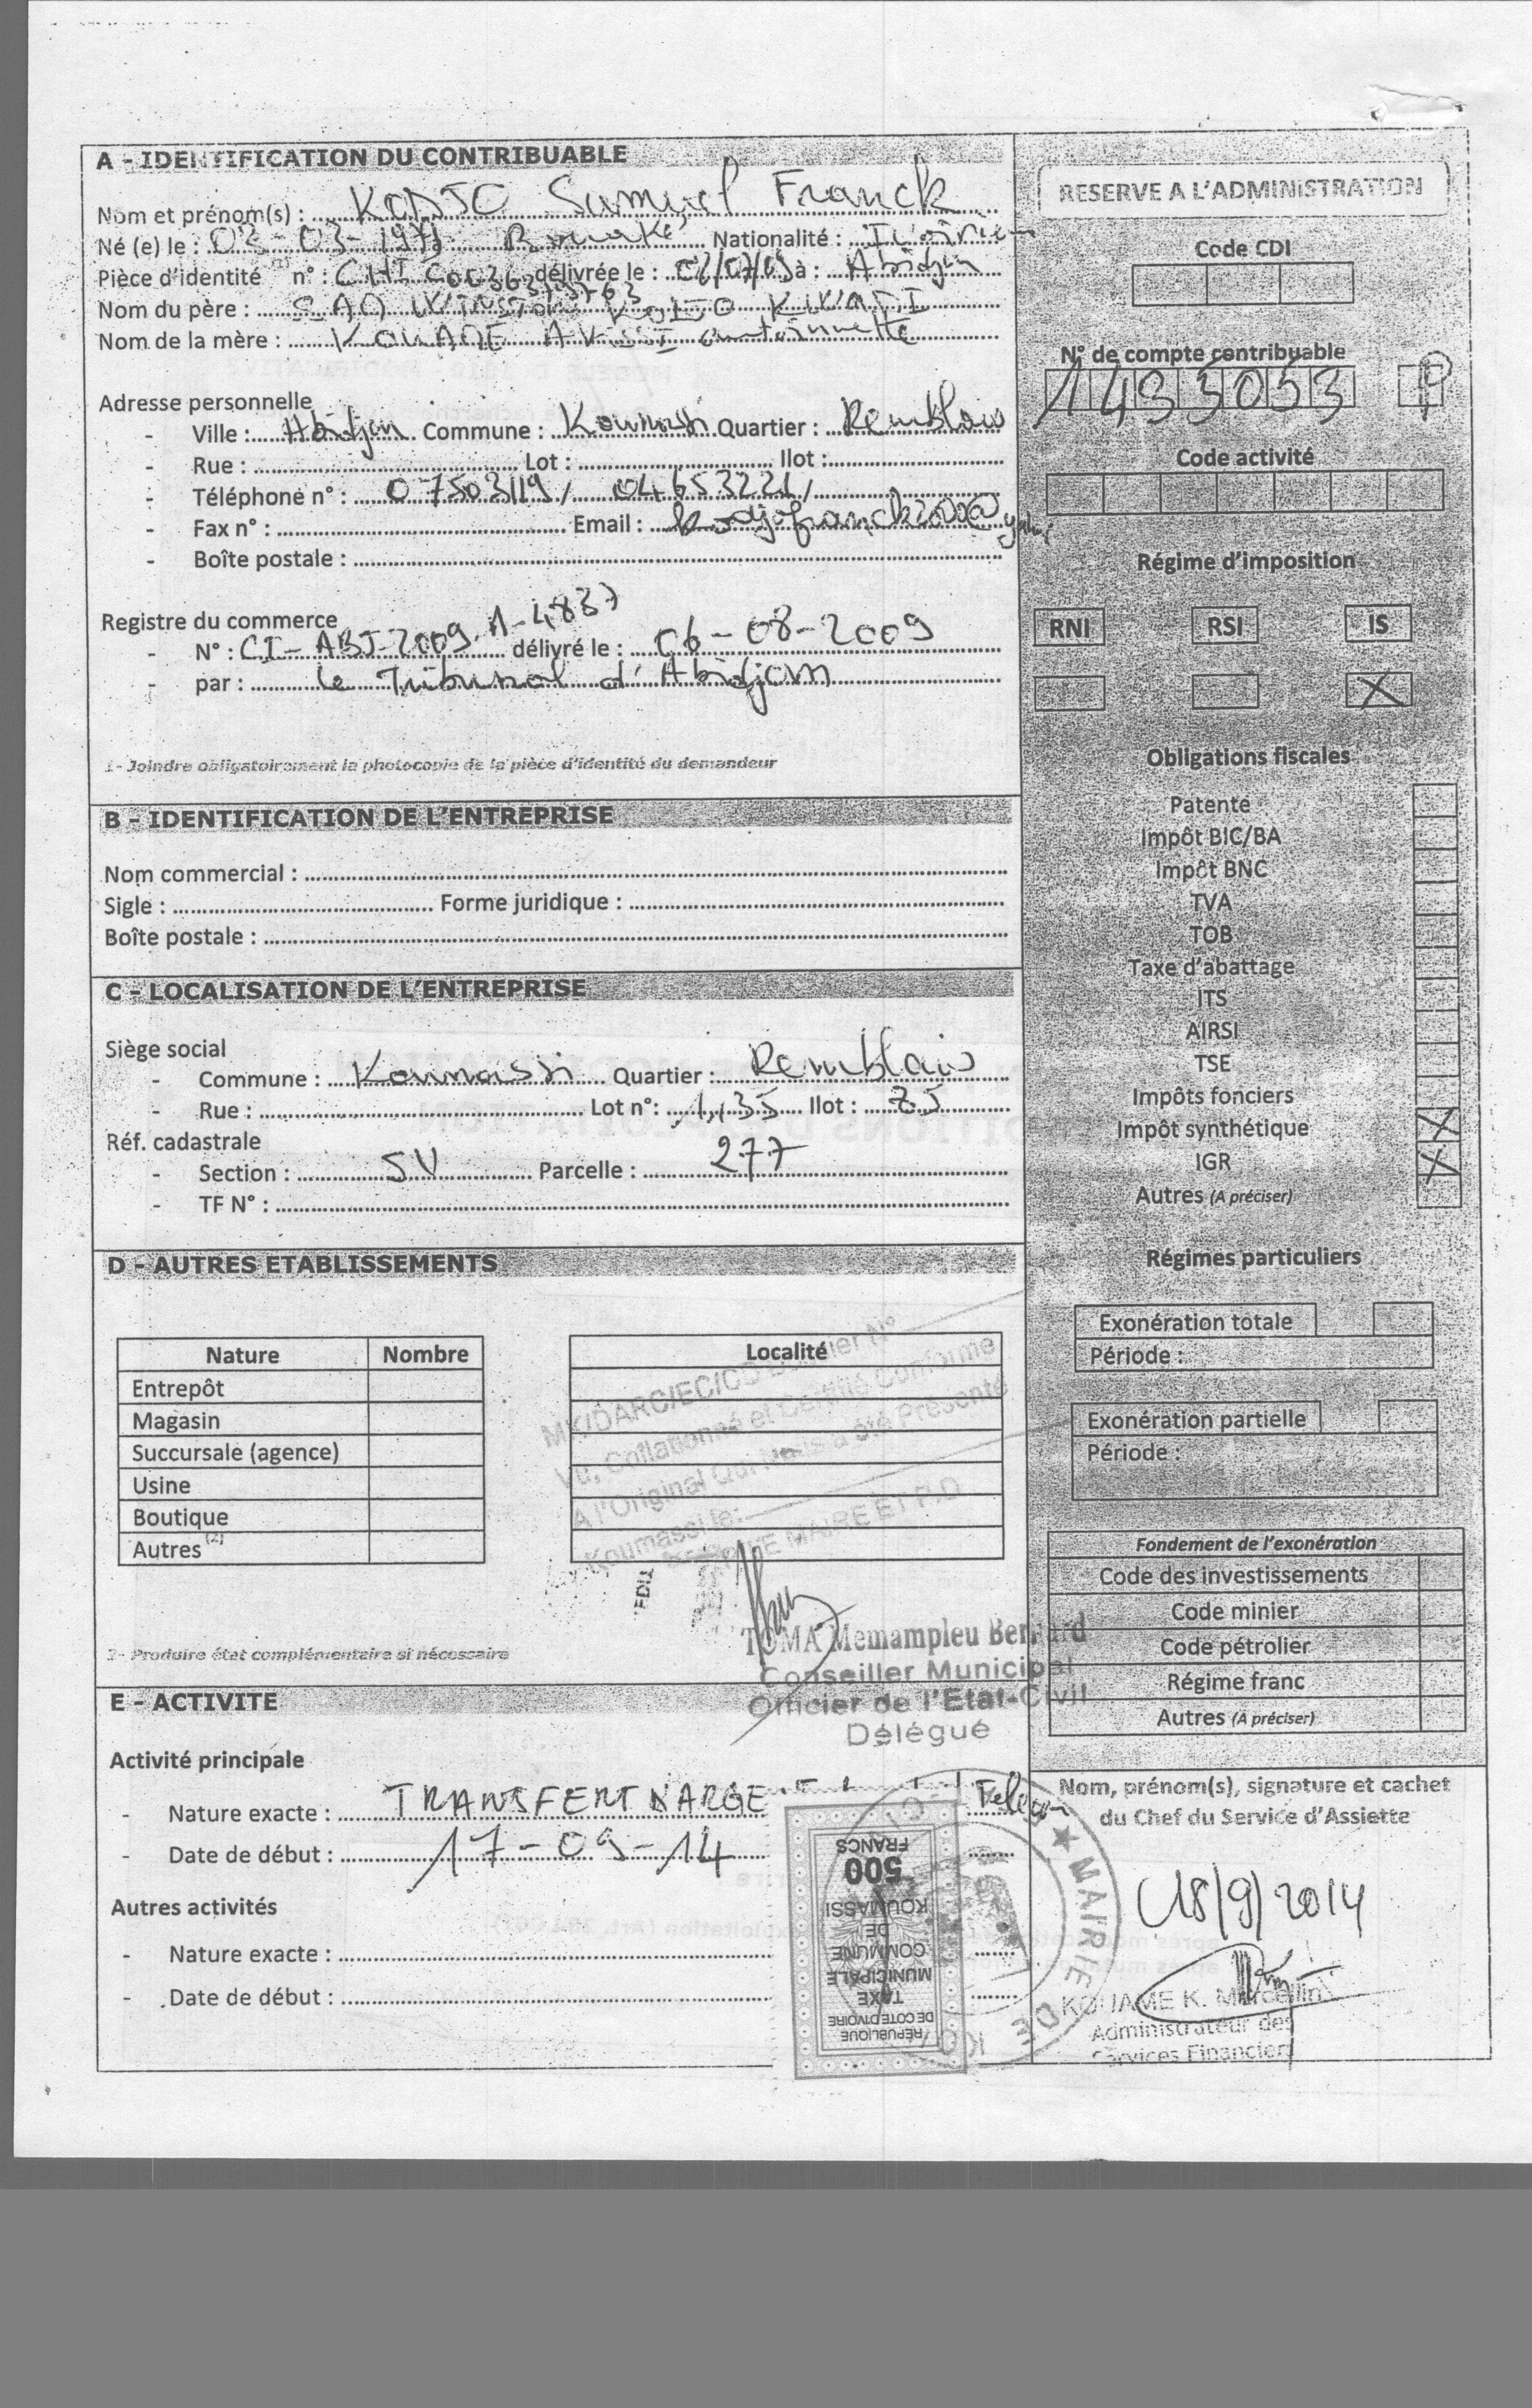 A - IDENTIFICATION DU CONTRIBUABLE
Nom et prénom(s) : KODJO Samuel Franck
Né (e) le : 03-03-1971 à Bouaké Nationalité : Ivoirien
Pièce d'identité (1) n° : délivrée le : à : Abidjan
Nom du père : KODJO
Nom de la mère : KOUAME
Adresse personnelle
- Ville : Abidjan Commune : Koumassi Quartier : Remblais
- Rue : Lot : Ilot :
- Téléphone n° : 07503119 / 04653221 /
- Fax n° : Email : kodjofranck2000@
- Boîte postale :
Registre du commerce
- N° : CI-ABJ-2009-A-4837 délivré le : 06-08-2009
- par : le Tribunal d'Abidjan
1- Joindre obligatoirement la photocopie de la pièce d'identité du demandeur
B - IDENTIFICATION DE L'ENTREPRISE
Nom commercial :
Sigle : Forme juridique :
Boîte postale :
C - LOCALISATION DE L'ENTREPRISE
Siège social
- Commune : Koumassi Quartier : Remblais
- Rue : Lot n° : 1135 Ilot : 75
Réf. cadastrale
- Section : SV Parcelle : 277
- TF N° :
D - AUTRES ETABLISSEMENTS
Nature Nombre Localité
Entrepôt
Magasin
Succursale (agence)
Usine
Boutique
Autres (2)
MK/DARC/EC/CD Dossier N°
Vu, Collationné et Certifié Conforme
A l'Original Qui Nous a été Présenté
Koumassi le:
LE MAIRE ET P.D
TOMA Memampleu Bernard
Conseiller Municipal
Officier de l'Etat-Civil
Délégué
2- Produire état complémentaire si nécessaire
E - ACTIVITE
Activité principale
- Nature exacte : TRANSFERT D'ARGE
- Date de début : 17-09-14
Autres activités
- Nature exacte :
- Date de début :
REPUBLIQUE
DE COTE D'IVOIRE
TAXE
MUNICIPALE
COMMUNE
DE
KOUMASSI
500
FRANCS
MAIRIE DE KO
RESERVE A L'ADMINISTRATION
Code CDI
N° de compte contribuable
1493053 P
Code activité
Régime d'imposition
RNI RSI IS
X
Obligations fiscales
Patente
Impôt BIC/BA
Impôt BNC
TVA
TOB
Taxe d'abattage
ITS
AIRSI
TSE
Impôts fonciers
Impôt synthétique X
IGR X
Autres (A préciser)
Régimes particuliers
Exonération totale
Période :
Exonération partielle
Période :
Fondement de l'exonération
Code des investissements
Code minier
Code pétrolier
Régime franc
Autres (A préciser)
Nom, prénom(s), signature et cachet
du Chef du Service d'Assiette
18/9/2014
KOUAME K. Marcellin
Administrateur des
Services Financiers